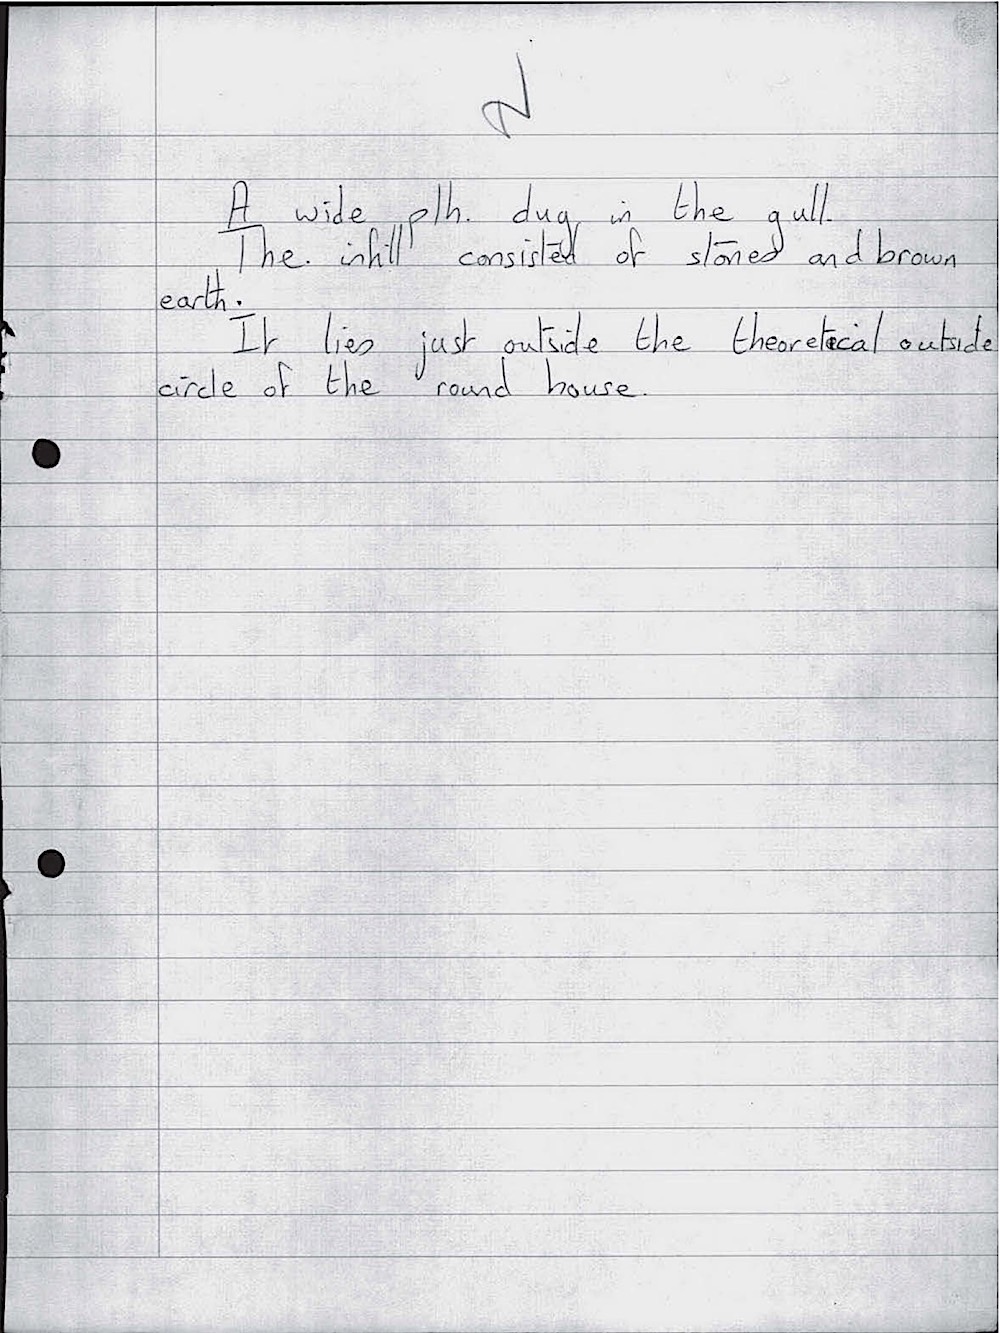 A wide plh. dug in the gull.
The. infill consisted of stones and brown
earth.
It lies just outside the theoretical outside
circle of the round house.